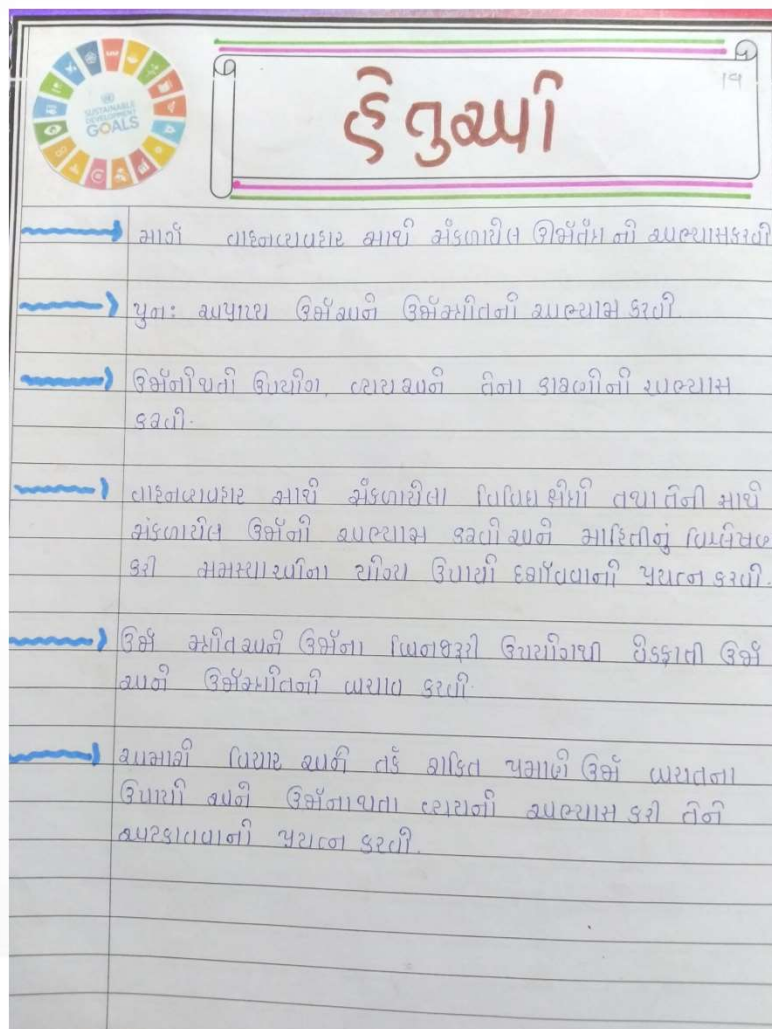 ૧૧
SUSTAINABLE
DEVELOPMENT
GOALS
હેતુઓ
માર્ગ વાહનવ્યવહાર સાથે સંકળાયેલ ઊર્જાતંત્ર નો અભ્યાસ કરવો
પુનઃ અપ્રાપ્ય ઉર્જા અને ઉર્જાસ્ત્રોતનો અભ્યાસ કરવો.
ઉર્જાનો થતો ઉપયોગ, વ્યય અને તેના કારણોનો અભ્યાસ
કરવો.
વાહનવ્યવહાર સાથે સંકળાયેલા વિવિધ ક્ષેત્રો તથા તેની સાથે
સંકળાયેલ ઉર્જાનો અભ્યાસ કરવો અને માહિતીનું વિશ્લેષણ
કરી સમસ્યાઓના યોગ્ય ઉપાયો દર્શાવવાનો પ્રયત્ન કરવો.
ઉર્જા સ્ત્રોત અને ઉર્જાના બિનજરૂરી ઉપયોગથી વેડફાતી ઉર્જા
અને ઉર્જાસ્ત્રોતનો બચાવ કરવો.
અમારી વિચાર અને તર્ક શક્તિ પ્રમાણે ઉર્જા બચતના
ઉપાયો અને ઉર્જાનાથતા વ્યયનો અભ્યાસ કરી તેને
અટકાવવાનો પ્રયત્ન કરવો.